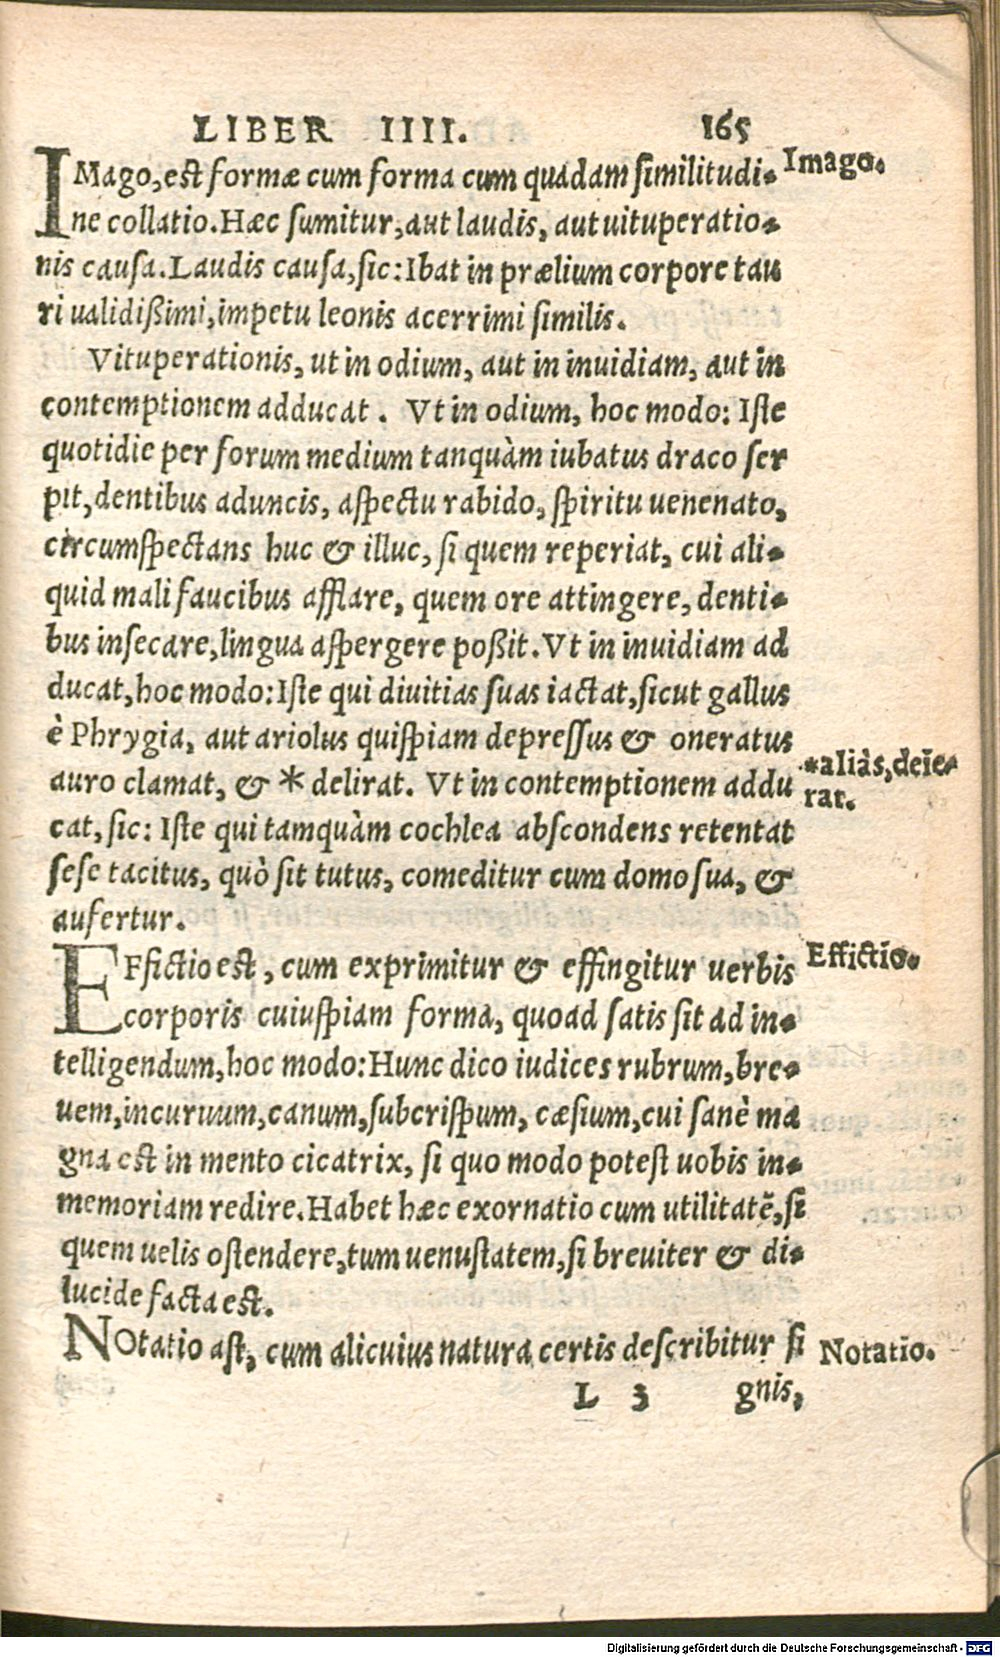 LIBER IIII. 165
IMago, est formæ cum forma cum quadam similitudi- Imago.
ne collatio. Hæc sumitur, aut laudis, aut uituperatio-
nis causa. Laudis causa, sic: Ibat in prælium corpore tau
ri ualidißimi, impetu leonis acerrimi similis.
Vituperationis, ut in odium, aut in inuidiam, aut in
contemptionem adducat. Vt in odium, hoc modo: Iste
quotidie per forum medium tanquàm iubatus draco ser
pit, dentibus aduncis, aspectu rabido, spiritu uenenato,
circumspectans huc & illuc, si quem reperiat, cui ali-
quid mali faucibus afflare, quem ore attingere, denti-
bus insecare, lingua aspergere poßit. Vt in inuidiam ad
ducat, hoc modo: Iste qui diuitias suas iactat, sicut gallus
è Phrygia, aut ariolus quispiam depressus & oneratus
auro clamat, & * delirat. Vt in contemptionem addu
*aliàs, deie-
rat.
cat, sic: Iste qui tamquàm cochlea abscondens retentat
sese tacitus, quò sit tutus, comeditur cum domo sua, &
aufertur.
EFfictio est, cum exprimitur & effingitur uerbis Effictio.
corporis cuiuspiam forma, quoad satis sit ad in-
telligendum, hoc modo: Hunc dico iudices rubrum, bre-
uem, incuruum, canum, subcrispum, cæsium, cui sanè ma
gna est in mento cicatrix, si quo modo potest uobis in-
memoriam redire. Habet hæc exornatio cum utilitatē, si
quem uelis ostendere, tum uenustatem, si breuiter & di-
lucide facta est.
NOtatio ast, cum alicuius natura certis describitur si Notatio.
L 3 gnis,
Digitalisierung gefördert durch die Deutsche Forschungsgemeinschaft - DFG